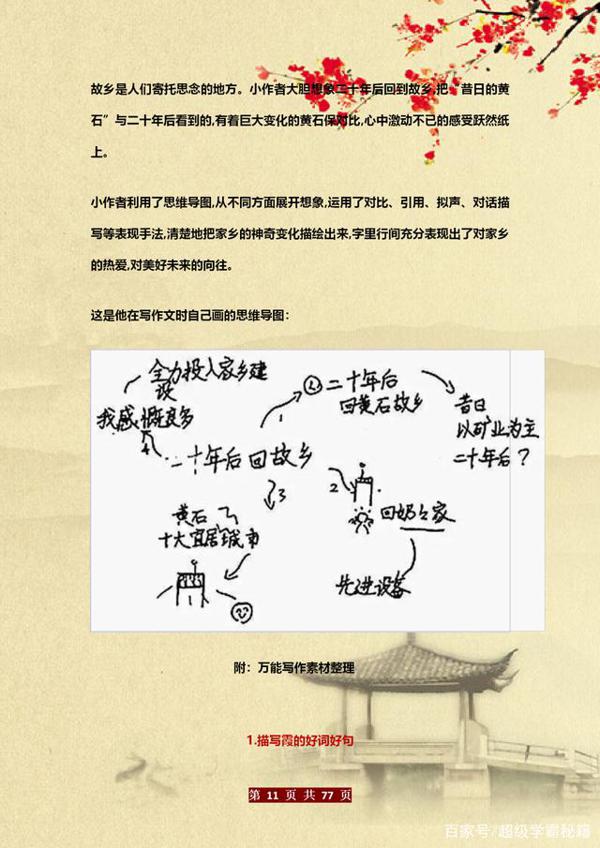 故乡是人们寄托思念的地方。小作者大胆想象二十年后回到故乡,把“昔日的黄
石”与二十年后看到的,有着巨大变化的黄石保对比,心中激动不已的感受跃然纸
上。
小作者利用了思维导图,从不同方面展开想象,运用了对比、引用、拟声、对话描
写等表现手法,清楚地把家乡的神奇变化描绘出来,字里行间充分表现出了对家乡
的热爱,对美好未来的向往。
这是他在写作文时自己画的思维导图:
全力投入家乡建
设
我感慨良多
4
二十年后回故乡
1
二十年后
回黄石故乡
昔日
以矿业为主
二十年后?
2
回奶々家
先进设备
3
黄石
十大宜居城市
附: 万能写作素材整理
1.描写霞的好词好句
第 11 页 共 77 页
百家号/超级学霸秘籍